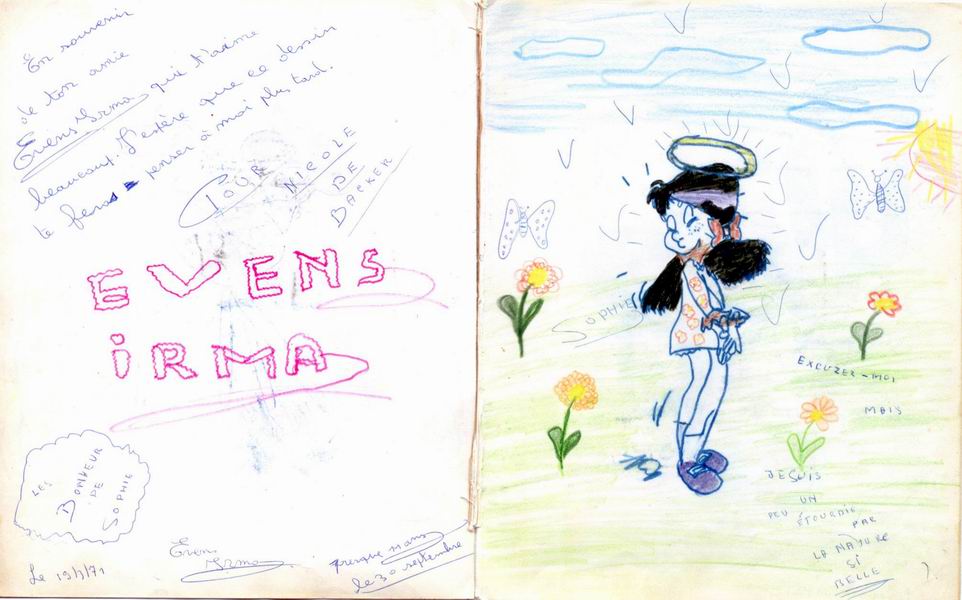 En souvenir
de ton amie
Evens Irma qui t'aime
beaucoup. J'espère que ce dessin
te feras penser à moi plus tard.
POUR
NICOLE
DE
BACKER
EVENS
iRMA
LES
BONHEUR
DE
SOPHIE
Le 19/1/71
Evens
Irma
presque 11 ans
le 30 septembre
SOPHIE
EXCUZER-MOI
MAIS
JE SUIS
UN
PEU ÉTOURDIE
PAR
LA NATURE
SI
BELLE